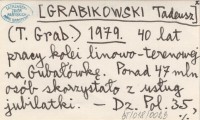 [GRABIKOWSKI Tadeusz]
(T. Grab.) 1979. 40 lat
pracy kolei linowo-terenowej
na Gubałówkę. Ponad 47 mln
osób skorzystało z usług
jubilatki. — Dz. Pol. 35